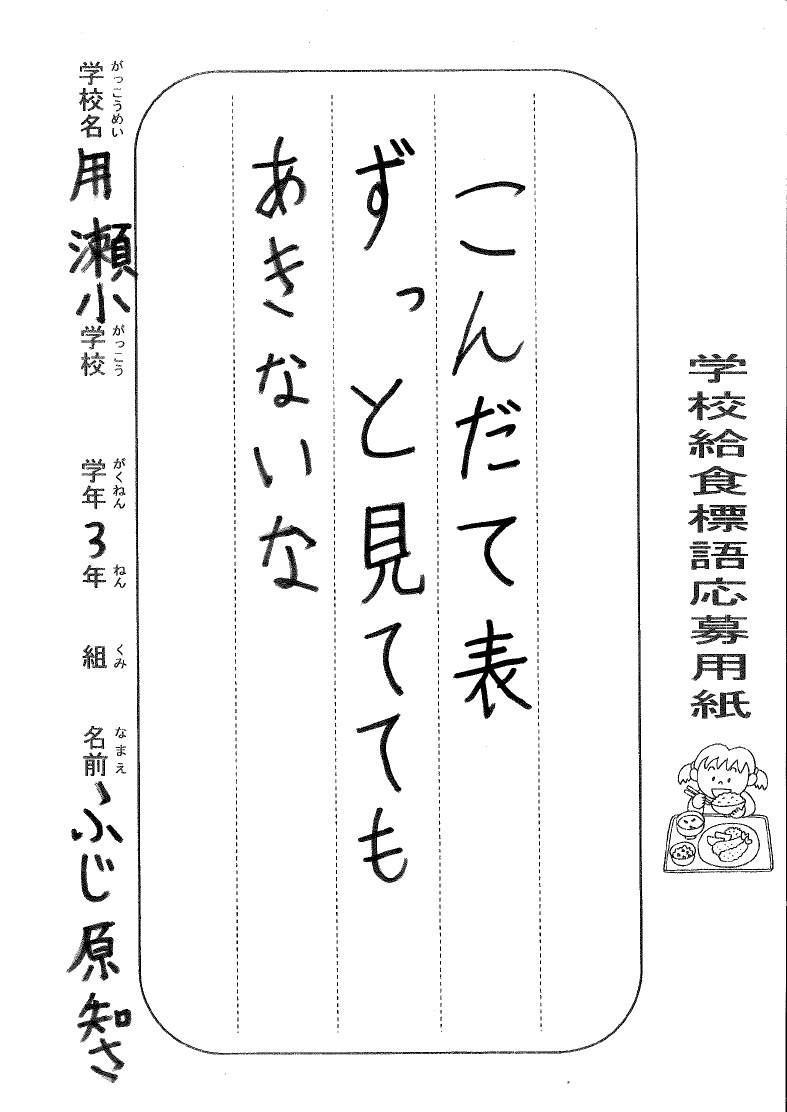 学校給食標語応募用紙
こんだて表
ずっと見てても
あきないな
学校名 用瀬小 学校 学年 3年 組 名前 ふじ原知さ
がっこうめい がっこう がくねん ねん くみ なまえ